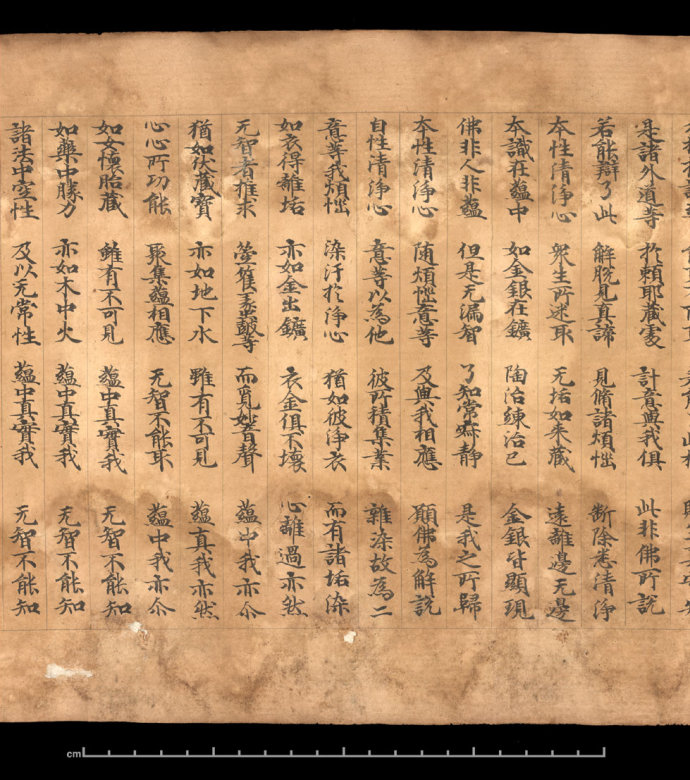 是諸外道等 於賴耶藏處 計意與我俱 此非佛所說
若能辯了此 解脫見真諦 見脩諸煩惱 断除悉清淨
本性清淨心 衆生所迷取 无垢如来藏 遠離邊无邊
本識在蘊中 如金銀在鑛 陶冶練治已 金銀皆顯現
佛非人非蘊 但是无漏智 了知常寂靜 是我之所歸
本性清淨心 随煩惱意等 及與我相應 願佛為解說
自性清淨心 意等以為他 彼所積集業 雜染故為二
意等我煩惱 染汙於淨心 猶如彼淨衣 而有諸垢染
如衣得離垢 亦如金出鑛 衣金俱不壞 心離過亦然
无智者推求 箜篌蠡鼓等 而覓妙音聲 蘊中我亦尒
猶如伏藏寶 亦如地下水 雖有不可見 蘊真我亦然
心心所功能 聚集蘊相應 无智不能取 蘊中我亦尒
如女懷胎藏 雖有不可見 蘊中真實我 无智不能知
如藥中勝力 亦如木中火 蘊中真實我 无智不能知
諸法中空性 及以无常性 蘊中真實我 无智不能知
cm